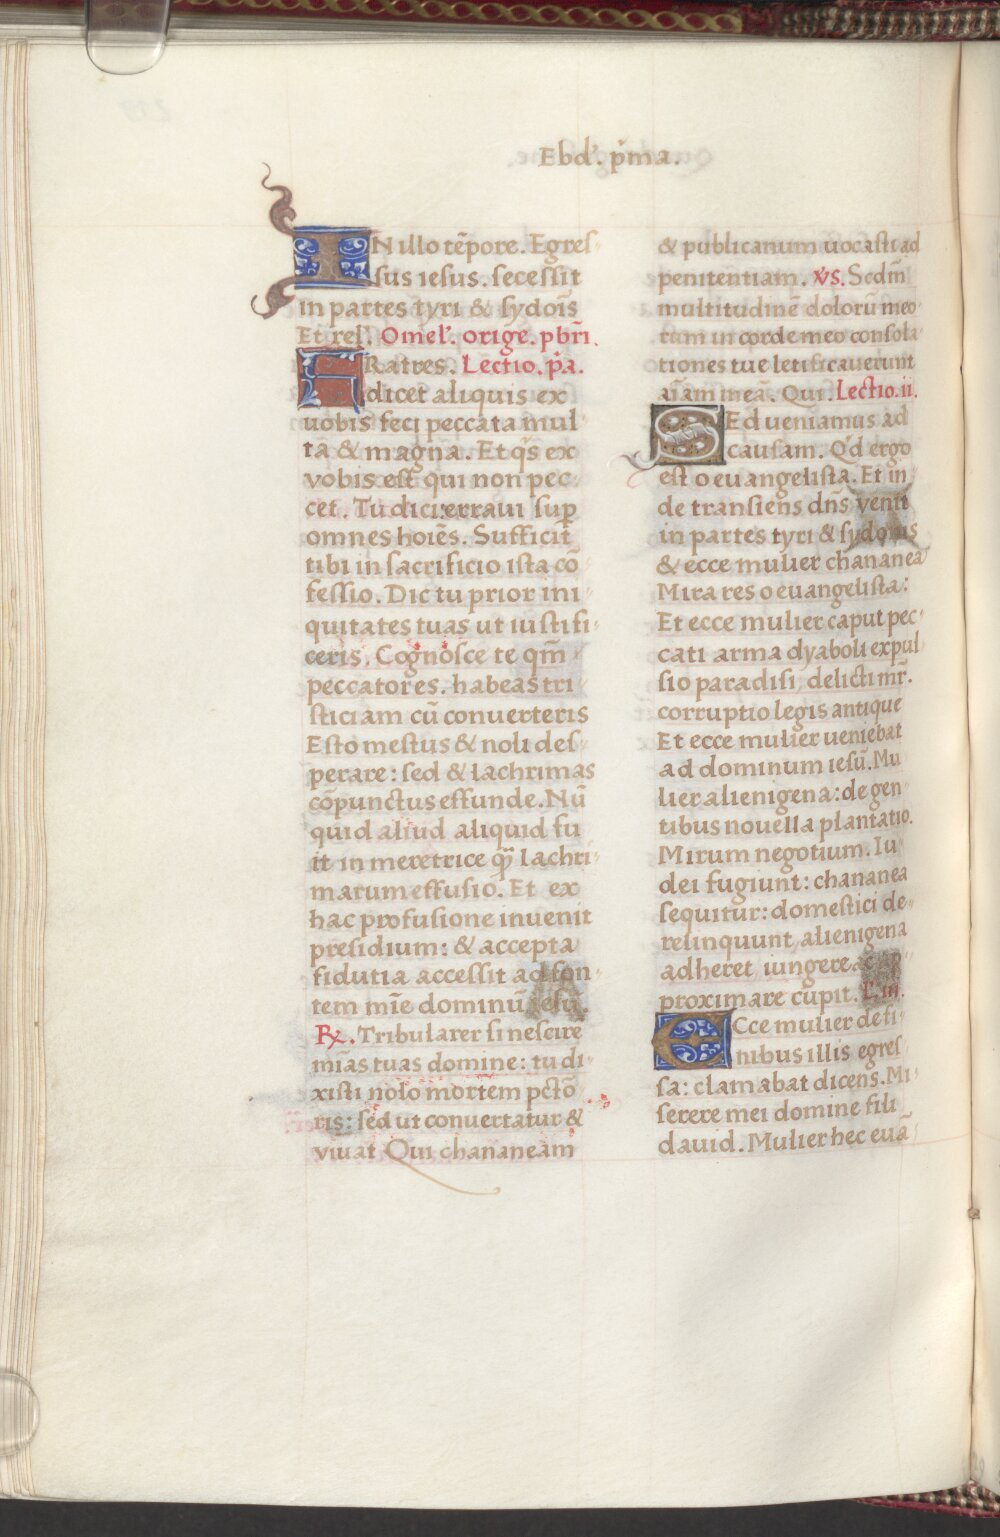 Ebd'. p̄ma.
IN illo tēpore. Egres-
sus iesus. secessit
in partes tyri & sydoīs
Et rel'. Omel'. orige. pbr̄i.
FRatres. Lectio. p̄a.
dicet aliquis ex
uobis feci peccata mul
ta & magna. Et q̄s ex
vobis est qui non pec-
cet. Tu dic: erraui sup̄
omnes hoīes. Sufficit
tibi in sacrificio ista cō-
fessio. Dic tu prior ini-
quitates tuas ut iustifi-
ceris. Cognosce te qm̄
peccatores. habeas tri-
sticiam cū conuerteris
Esto mestus & noli des-
perare: sed & lachrimas
cōpunctus effunde. Nū
quid aliud aliquid fu
it in meretrice q̄ lachri-
marum effusio. Et ex
hac profusione inuenit
presidium: & accepta
fidutia accessit ad fon-
tem mīe dominū iesū.
℟. Tribularer si nescire
mīas tuas domine: tu di-
xisti nolo mortem pctō
ris: sed ut conuertatur &
viuat Qui chananeam
& publicanum uocasti ad
penitentiam. v̄s. Scdm̄
multitudinē dolorū meo-
rum in corde meo consola-
tiones tue letificauerunt
aīam meā. Qui. Lectio. ii.
SEd ueniamus ad
causam. Q'd ergo
est o euangelista. Et in
de transiens dn̄s venit
in partes tyri & sydonis
& ecce mulier chananea
Mira res o euangelista:
Et ecce mulier caput pec-
cati arma dyaboli expul
sio paradisi, delicti mr̄.
corruptio legis antique
Et ecce mulier ueniebat
ad dominum iesū. Mu
lier alienigena: de gen-
tibus nouella plantatio.
Mirum negotium. Iu-
dei fugiunt: chananea
sequitur: domestici de-
relinquunt, alienigena
adheret iungere ac ap-
proximare cupit. L. iii.
ECce mulier de fi-
nibus illis egres
sa: clamabat dicens. Mi-
serere mei domine fili
dauid. Mulier hec euā-